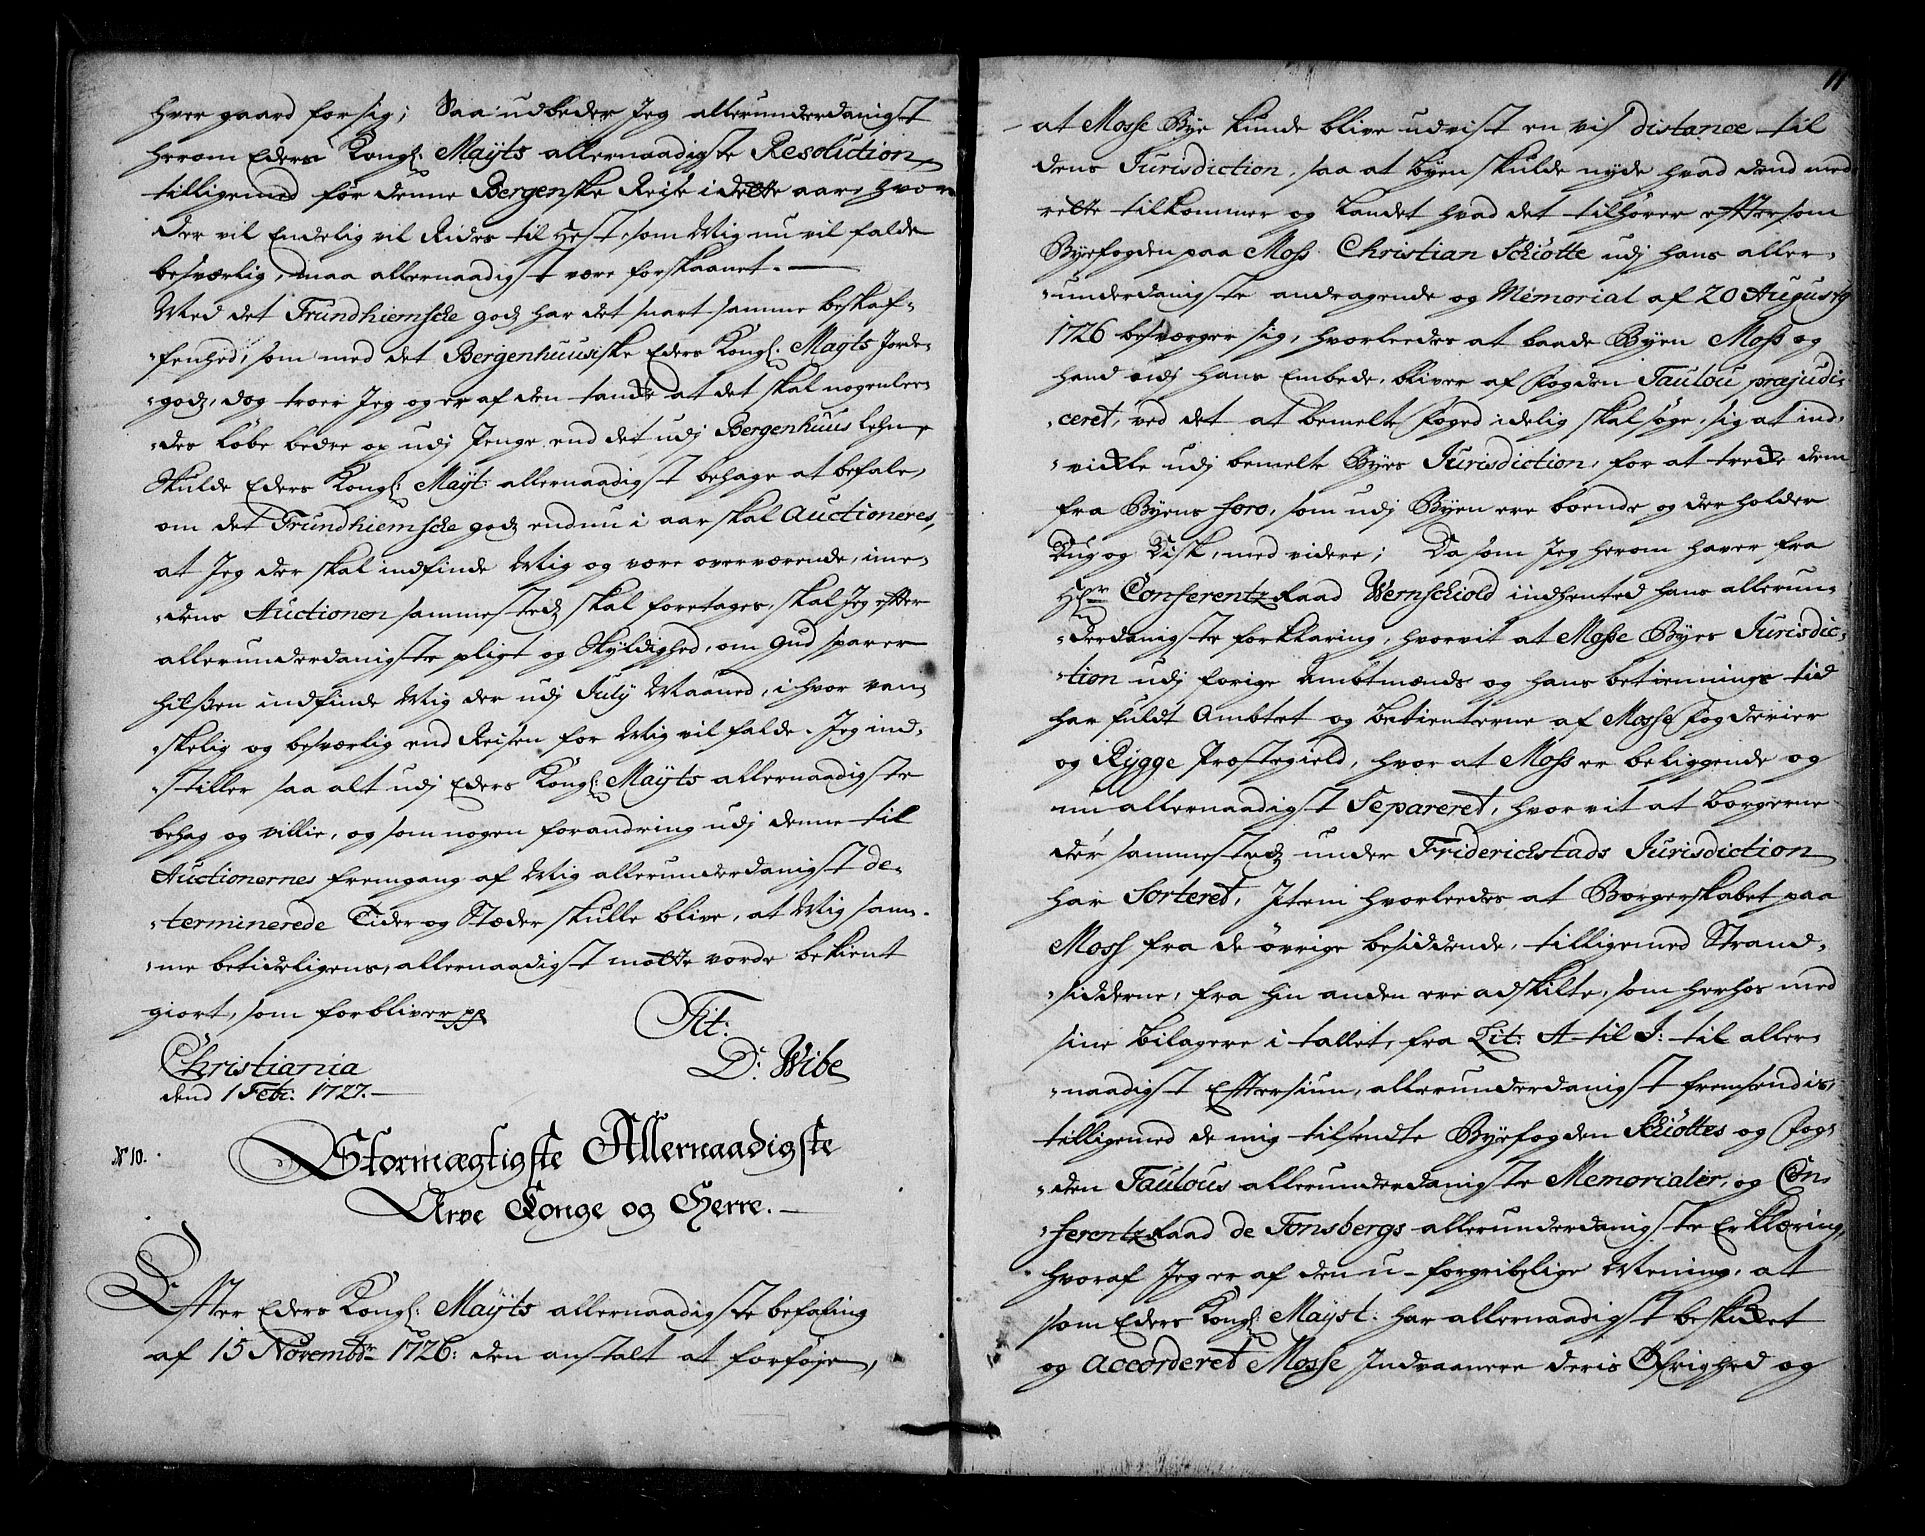 hver gaard for sig; Saa udbeder Jeg allerunderdanigst
herom Eders Kongl: Mayts allernaadigste Resolution,
tilligemed før denne Bergenske Reise i dette aar, hvor
der vil Endelig vil Rides til Hest, som Mig nu vil falde
besværlig, maa allernaadigst være forskaanet. —
Med det Trundhiemsche godz har det snart samme beskaf-
-fenhed, som med det Bergenhuusiske Eders Kongl: Mayts Jorde-
-godz, dog troer Jeg og er af den tanke at det skal nogenlee-
-des løbe bedre op udj Penge, end det udj Bergenhuus Lehn,
Skulde Eders Kongl: Mayt: allernaadigst behage at befale,
om det Trundhiemsche godz endnu i aar skal Auctioneres,
at Jeg der skal indfinde Mig og være overværende, ime-
-dens Auctionen sammestedz skal foretages, skal Jeg efter
allerunderdanigste pligt og Skyldighed, om Gud sparer
hilsen indfinde Mig der udj July Maaned, i hvor van-
-skelig og besværlig end Reisen for Mig vil falde. Jeg ind-
-stiller saa alt udj Eders Kongl: Mayts allernaadigste
behag og villie, og som nogen forandring udj denne til
Auctionernes fremgang af Mig allerunderdanigst de-
-terminerede Tider og Stæder skulle blive, at Mig sam-
-me betideligens, allernaadigst motte vorde bekient
giort, som forbliver pp
Tit:
Christiania
D: Wibe
dend 1 Febr: 1727. —
No 10.
Stormægtigste Allernaadigste
Arve Konge og Herre. —
Efter Eders Kongl: Mayts allernaadigste befaling
af 15 Novembr 1726: den anstalt at forføje,
11
at Mosse Bye kunde blive udvist en vis distance til
dens Jurisdiction, saa at Byen skulde nyde hvad dend med
rette tilkommer og Landet hvad det tilhører eftersom
Byefogden paa Moss Christian Schiøtte udj hans aller-
-underdanigste andragende og Memorial af 20 Augusty
1726 besværger sig, hvorleedes at baade Byen Moss og
hand udj hans Embede, bliver af Fogden Taulou præjudi-
-ceret, ved det at bemelte Foged idelig skal søge, sig at ind-
-vikle udj bemelte Byes Jurisdiction, for at trekke dem
fra Byens foro, som udj Byen ere boende og der holder
Dug og Disk, med videre; Da som Jeg herom haver fra
Hr Conferentz Raad Wernschiold indhented hans allerun-
-derdanigste forklaring, hvorvit at Mosse Byes Jurisdic-
-tion udj forige Ambtmænds og hans betiennings tid
har fuldt Ambtet og betienterne af Mosse Fogderier
og Rygge Prostegield, hvor at Moss er beliggende og
nu allernaadigst Separeret, hvor vit at Borgerne
der sammestedz under Friderichstads Jurisdiction
har Sorteret, Item hvorleedes at Borgerskabet paa
Moss fra de øvrige besiddende, tilligemed Strand-
-sidderne, fra hin anden ere adskilte, som herhos med
sine bilagere i tallet, fra Lit: A til I: til aller-
-naadigst Eftersiun, allerunderdanigst fremsendis,
tilligemed de mig tilsendte Byefogden Schiøttes og Fog-
-den Taulous allerunderdanigste Memorialer, og Con-
-ferentz Raad de Tonsbergs allerunderdanigste Erklæring,
hvoraf Jeg er af den u-forgribelige Mening, at
som Eders Kongl: Mayst: har allernaadigst beskikket
og accorderet Mosse Indvaanere deris Øfrighed og